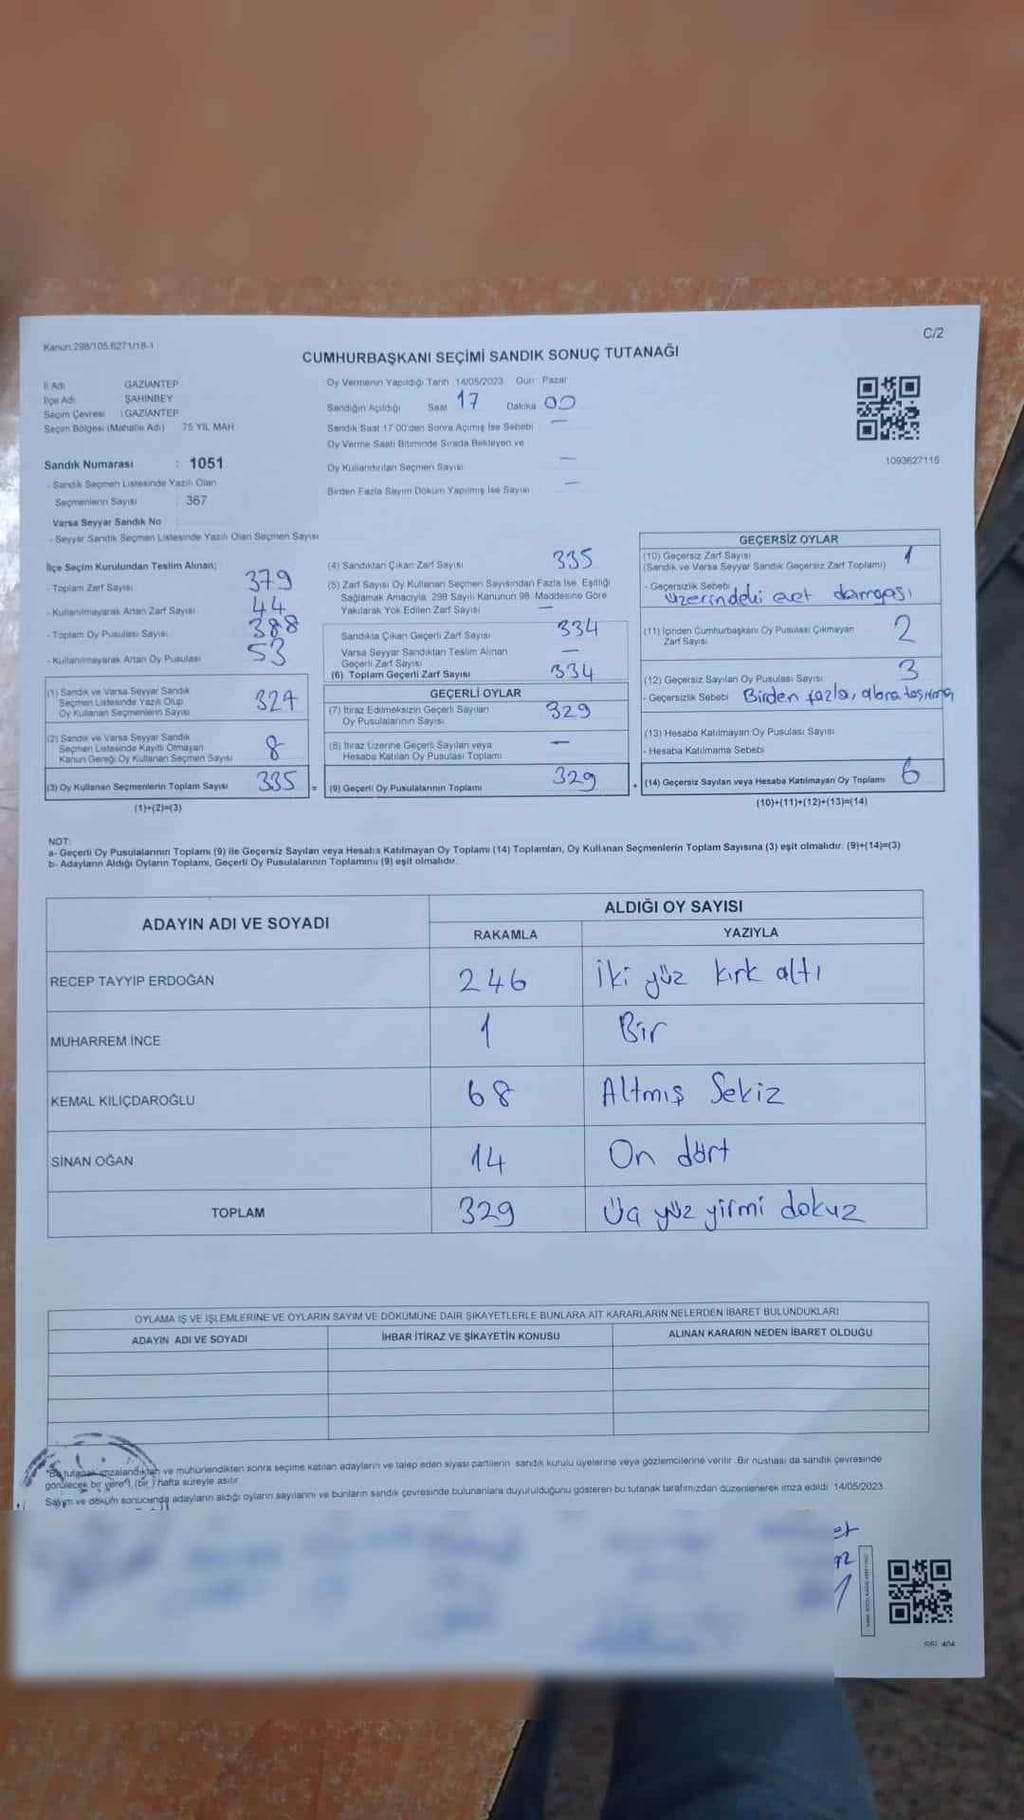 Kanun:298/105:6271/18-1
C/2
CUMHURBAŞKANI SEÇİMİ SANDIK SONUÇ TUTANAĞI
İl Adı GAZİANTEP
İlçe Adı ŞAHİNBEY
Seçim Çevresi : GAZİANTEP
Seçim Bölgesi (Mahalle Adı) 75 YIL MAH
Sandık Numarası : 1051
- Sandık Seçmen Listesinde Yazılı Olan
Seçmenlerin Sayısı : 367
Varsa Seyyar Sandık No
- Seyyar Sandık Seçmen Listesinde Yazılı Olan Seçmen Sayısı
Oy Vermenin Yapıldığı Tarih 14/05/2023 Gün Pazar
Sandığın Açıldığı Saat 17 Dakika 00
Sandık Saat 17 00'den Sonra Açımış İse Sebebi —
Oy Verme Saati Bitiminde Sırada Bekleyen ve
Oy Kullandırılan Seçmen Sayısı —
Birden Fazla Sayım Döküm Yapılmış İse Sayısı —
1093627115
İlçe Seçim Kurulundan Teslim Alınan;
- Toplam Zarf Sayısı 379
- Kullanılmayarak Artan Zarf Sayısı 44
- Toplam Oy Pusulası Sayısı 388
- Kullanılmayarak Artan Oy Pusulası 53
(1) Sandık ve Varsa Seyyar Sandık
Seçmen Listesinde Yazılı Olup
Oy Kullanan Seçmenlerin Sayısı 327
(2) Sandık ve Varsa Seyyar Sandık
Seçmen Listesinde Kayıtlı Olmayan
Kanun Gereği Oy Kullanan Seçmen Sayısı 8
(3) Oy Kullanan Seçmenlerin Toplam Sayısı 335 =
(1)+(2)=(3)
(4) Sandıktan Çıkan Zarf Sayısı 335
(5) Zarf Sayısı Oy Kullanan Seçmen Sayısından Fazla İse, Eşitliği
Sağlamak Amacıyla, 298 Sayılı Kanunun 98. Maddesine Göre
Yakılarak Yok Edilen Zarf Sayısı —
Sandıkta Çıkan Geçerli Zarf Sayısı 334
Varsa Seyyar Sandıktan Teslim Alınan
Geçerli Zarf Sayısı —
(6) Toplam Geçerli Zarf Sayısı 334
GEÇERLİ OYLAR
(7) İtiraz Edilmeksizin Geçerli Sayılan
Oy Pusulalarının Sayısı 329
(8) İtiraz Üzerine Geçerli Sayılan veya
Hesaba Katılan Oy Pusulası Toplamı —
(9) Geçerli Oy Pusulalarının Toplamı 329 +
GEÇERSİZ OYLAR
(10) Geçersiz Zarf Sayısı 1
(Sandık ve Varsa Seyyar Sandık Geçersiz Zarf Toplamı)
- Geçersizlik Sebebi
üzerindeki evet damgası
(11) İçinden Cumhurbaşkanı Oy Pusulası Çıkmayan
Zarf Sayısı 2
(12) Geçersiz Sayılan Oy Pusulası Sayısı 3
- Geçersizlik Sebebi Birden fazla,
(13) Hesaba Katılmayan Oy Pusulası Sayısı
- Hesaba Katılmama Sebebi
(14) Geçersiz Sayılan veya Hesaba Katılmayan Oy Toplamı 6
(10)+(11)+(12)+(13)=(14)
NOT:
a- Geçerli Oy Pusulalarının Toplamı (9) ile Geçersiz Sayılan veya Hesaba Katılmayan Oy Toplamı (14) Toplamları, Oy Kullanan Seçmenlerin Toplam Sayısına (3) eşit olmalıdır. (9)+(14)=(3)
b- Adayların Aldığı Oyların Toplamı, Geçerli Oy Pusulalarının Toplamına (9) eşit olmalıdır.
ADAYIN ADI VE SOYADI
ALDIĞI OY SAYISI
RAKAMLA YAZIYLA
RECEP TAYYİP ERDOĞAN 246 İki yüz kırk altı
MUHARREM İNCE 1 Bir
KEMAL KILIÇDAROĞLU 68 Altmış Sekiz
SİNAN OĞAN 14 On dört
TOPLAM 329 Üç yüz yirmi dokuz
OYLAMA İŞ VE İŞLEMLERİNE VE OYLARIN SAYIM VE DÖKÜMÜNE DAİR ŞİKAYETLERLE BUNLARA AİT KARARLARIN NELERDEN İBARET BULUNDUKLARI
ADAYIN ADI VE SOYADI İHBAR İTİRAZ VE ŞİKAYETİN KONUSU ALINAN KARARIN NEDEN İBARET OLDUĞU
"Bu tutanak imzalandıktan ve mühürlendikten sonra seçime katılan adayların ve talep eden siyasi partilerin sandık kurulu üyelerine veya gözlemcilerine verilir. Bir nüshası da sandık çevresinde
görülecek bir yere 1 (bir ) hafta süreyle asılır
Sayım ve döküm sonucunda adayların aldığı oyların sayılarını ve bunların sandık çevresinde bulunanlara duyurulduğunu gösteren bu tutanak tarafımızdan düzenlenerek imza edildi. 14/05/2023